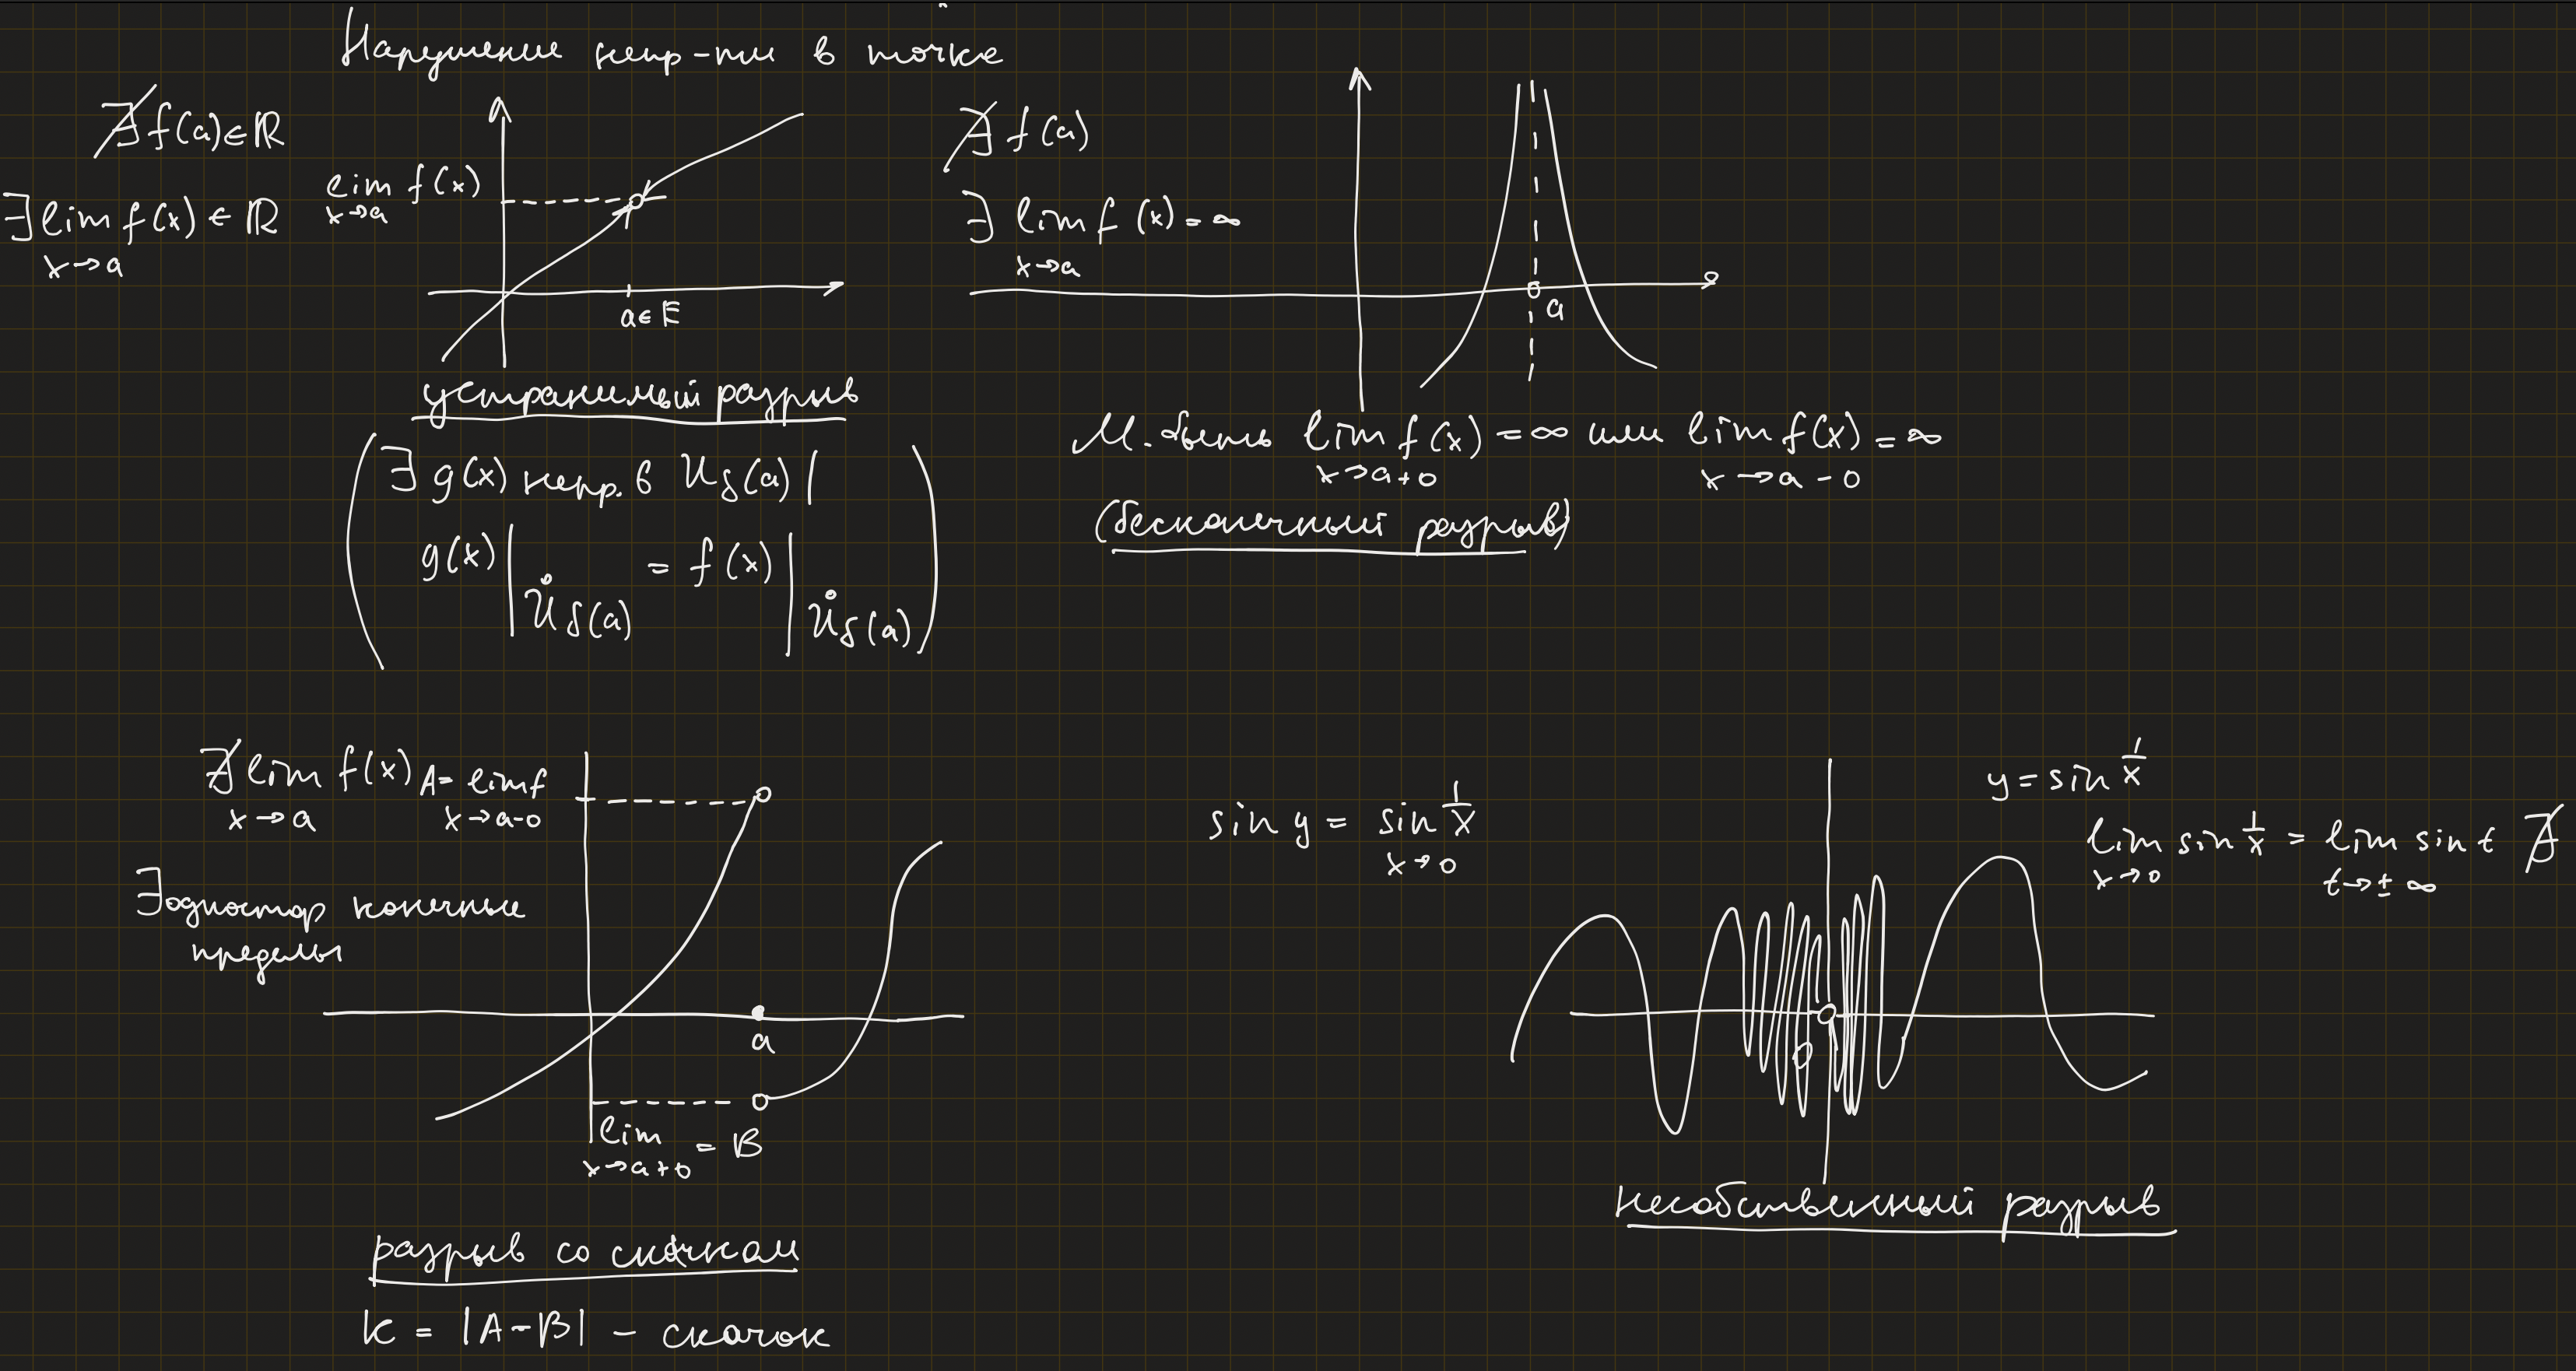 Нарушение непр-ти в точке
∄ f(a)∈ℝ
∃ lim f(x) ∈ ℝ
x→a
lim f(x)
x→a
a∈E
устранимый разрыв
∃ g(x) непр. в U_δ(a) |
g(x)| = f(x)|
Ů_δ(a) Ů_δ(a)
∄ f(a)
∃ lim f(x) = ∞
x→a
a
М. быть lim f(x) = ∞ или lim f(x) = ∞
x→a+0 x→a-0
(бесконечный разрыв)
∄ lim f(x)
x→a
A = lim f
x→a-0
∃ одностор конечные
пределы
a
lim = B
x→a+0
разрыв со скачком
k = |A-B| - скачок
sin y = sin 1/x
x→0
y = sin 1/x
lim sin 1/x = lim sin t ∄
x→0 t→±∞
несобственный разрыв